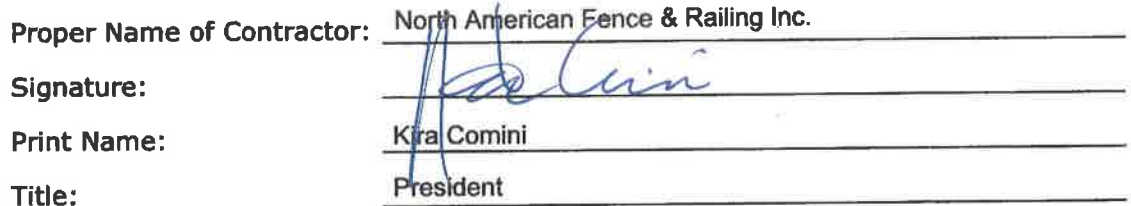 Proper Name of Contractor: North American Fence & Railing Inc.
Signature:
Print Name: Kira Comini
Title: President